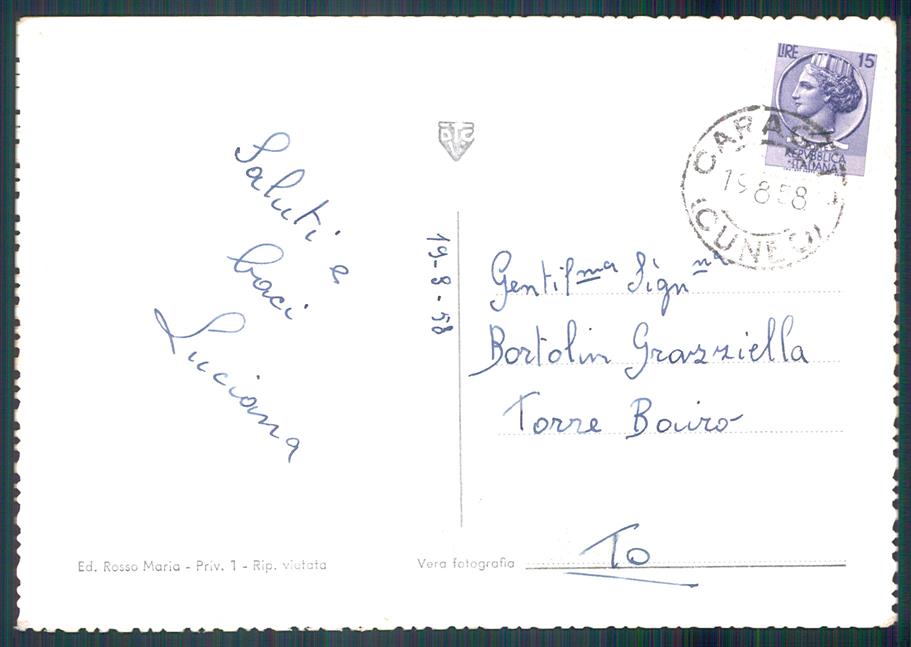 LIRE 15
REPVBBLICA
ITALIANA
CARAGLIO
19.8.58
(CUNEO)
Saluti e
baci
Luciana
19-8-58
Gentilma Signna
Bortolin Grazziella
Torre Bairo
To
Ed. Rosso Maria - Priv. 1 - Rip. vietata
Vera fotografia